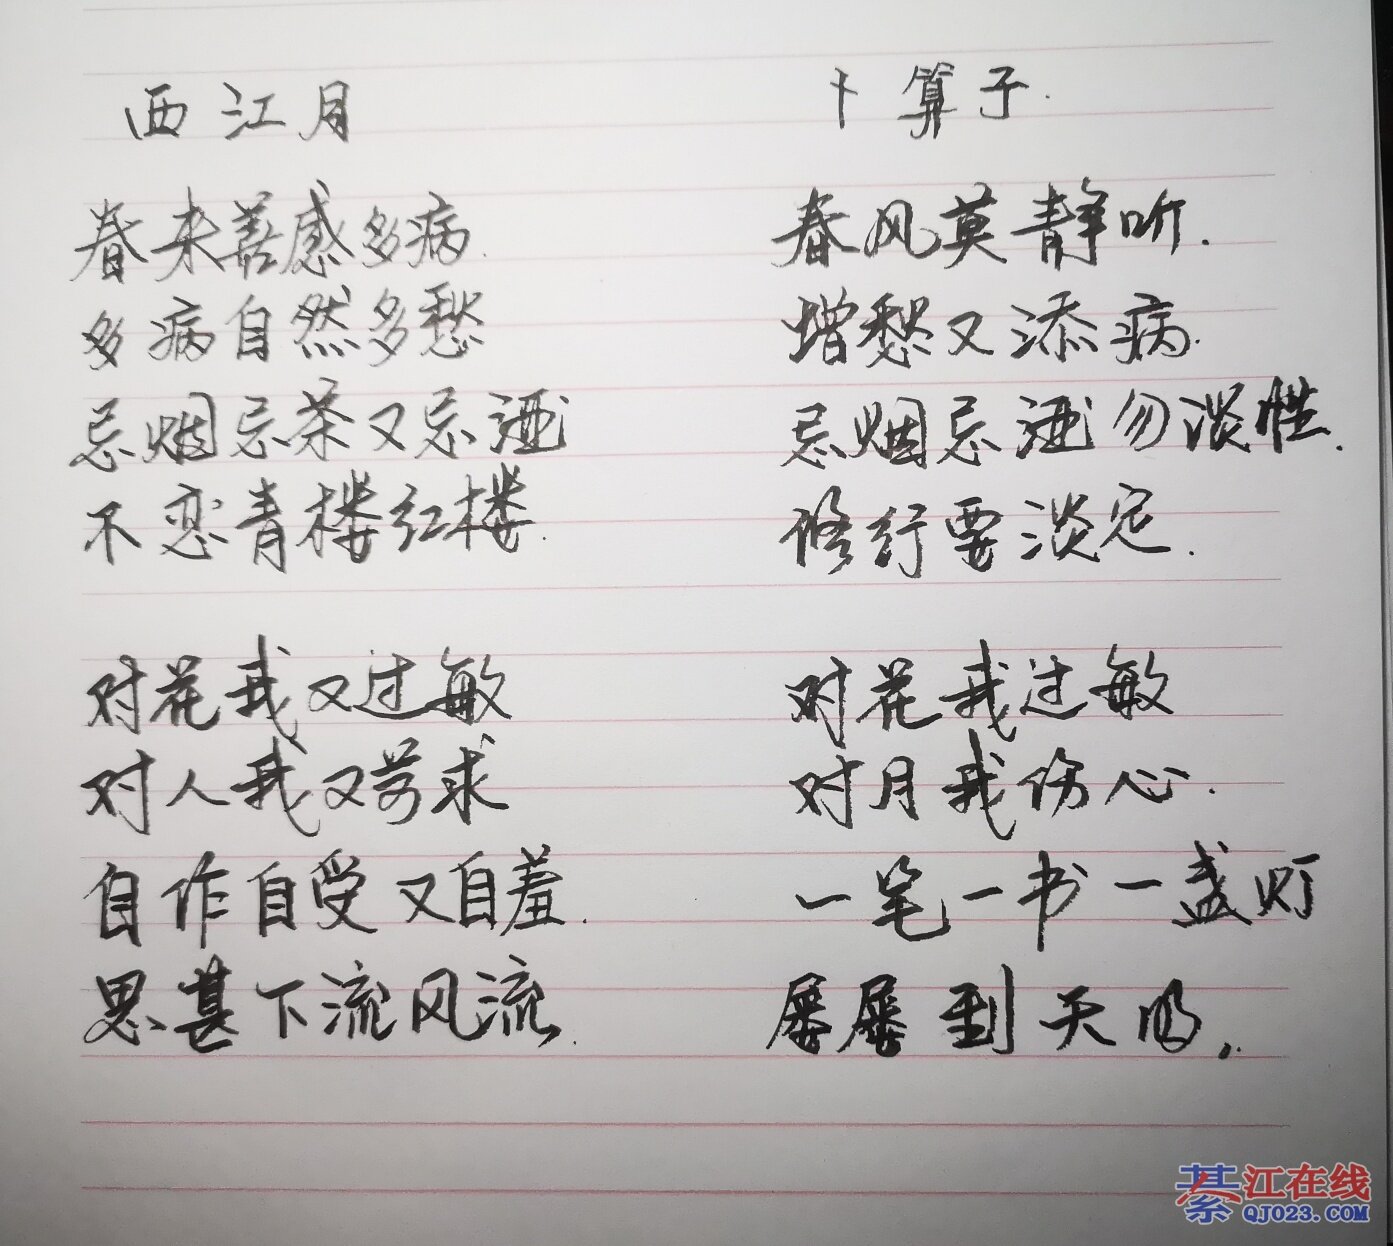 西江月
春来善感多病.
多病自然多愁
忌烟忌茶又忌酒
不恋青楼红楼.
对花我又过敏
对人我又苛求
自作自受又自羞.
思甚下流风流.
卜算子.
春风莫静听.
增愁又添病.
忌烟忌酒勿淡性.
修行要淡定.
对花我过敏
对月我伤心.
一笔一书一盏灯
屡屡到天明.
綦江在线
QJ023.COM